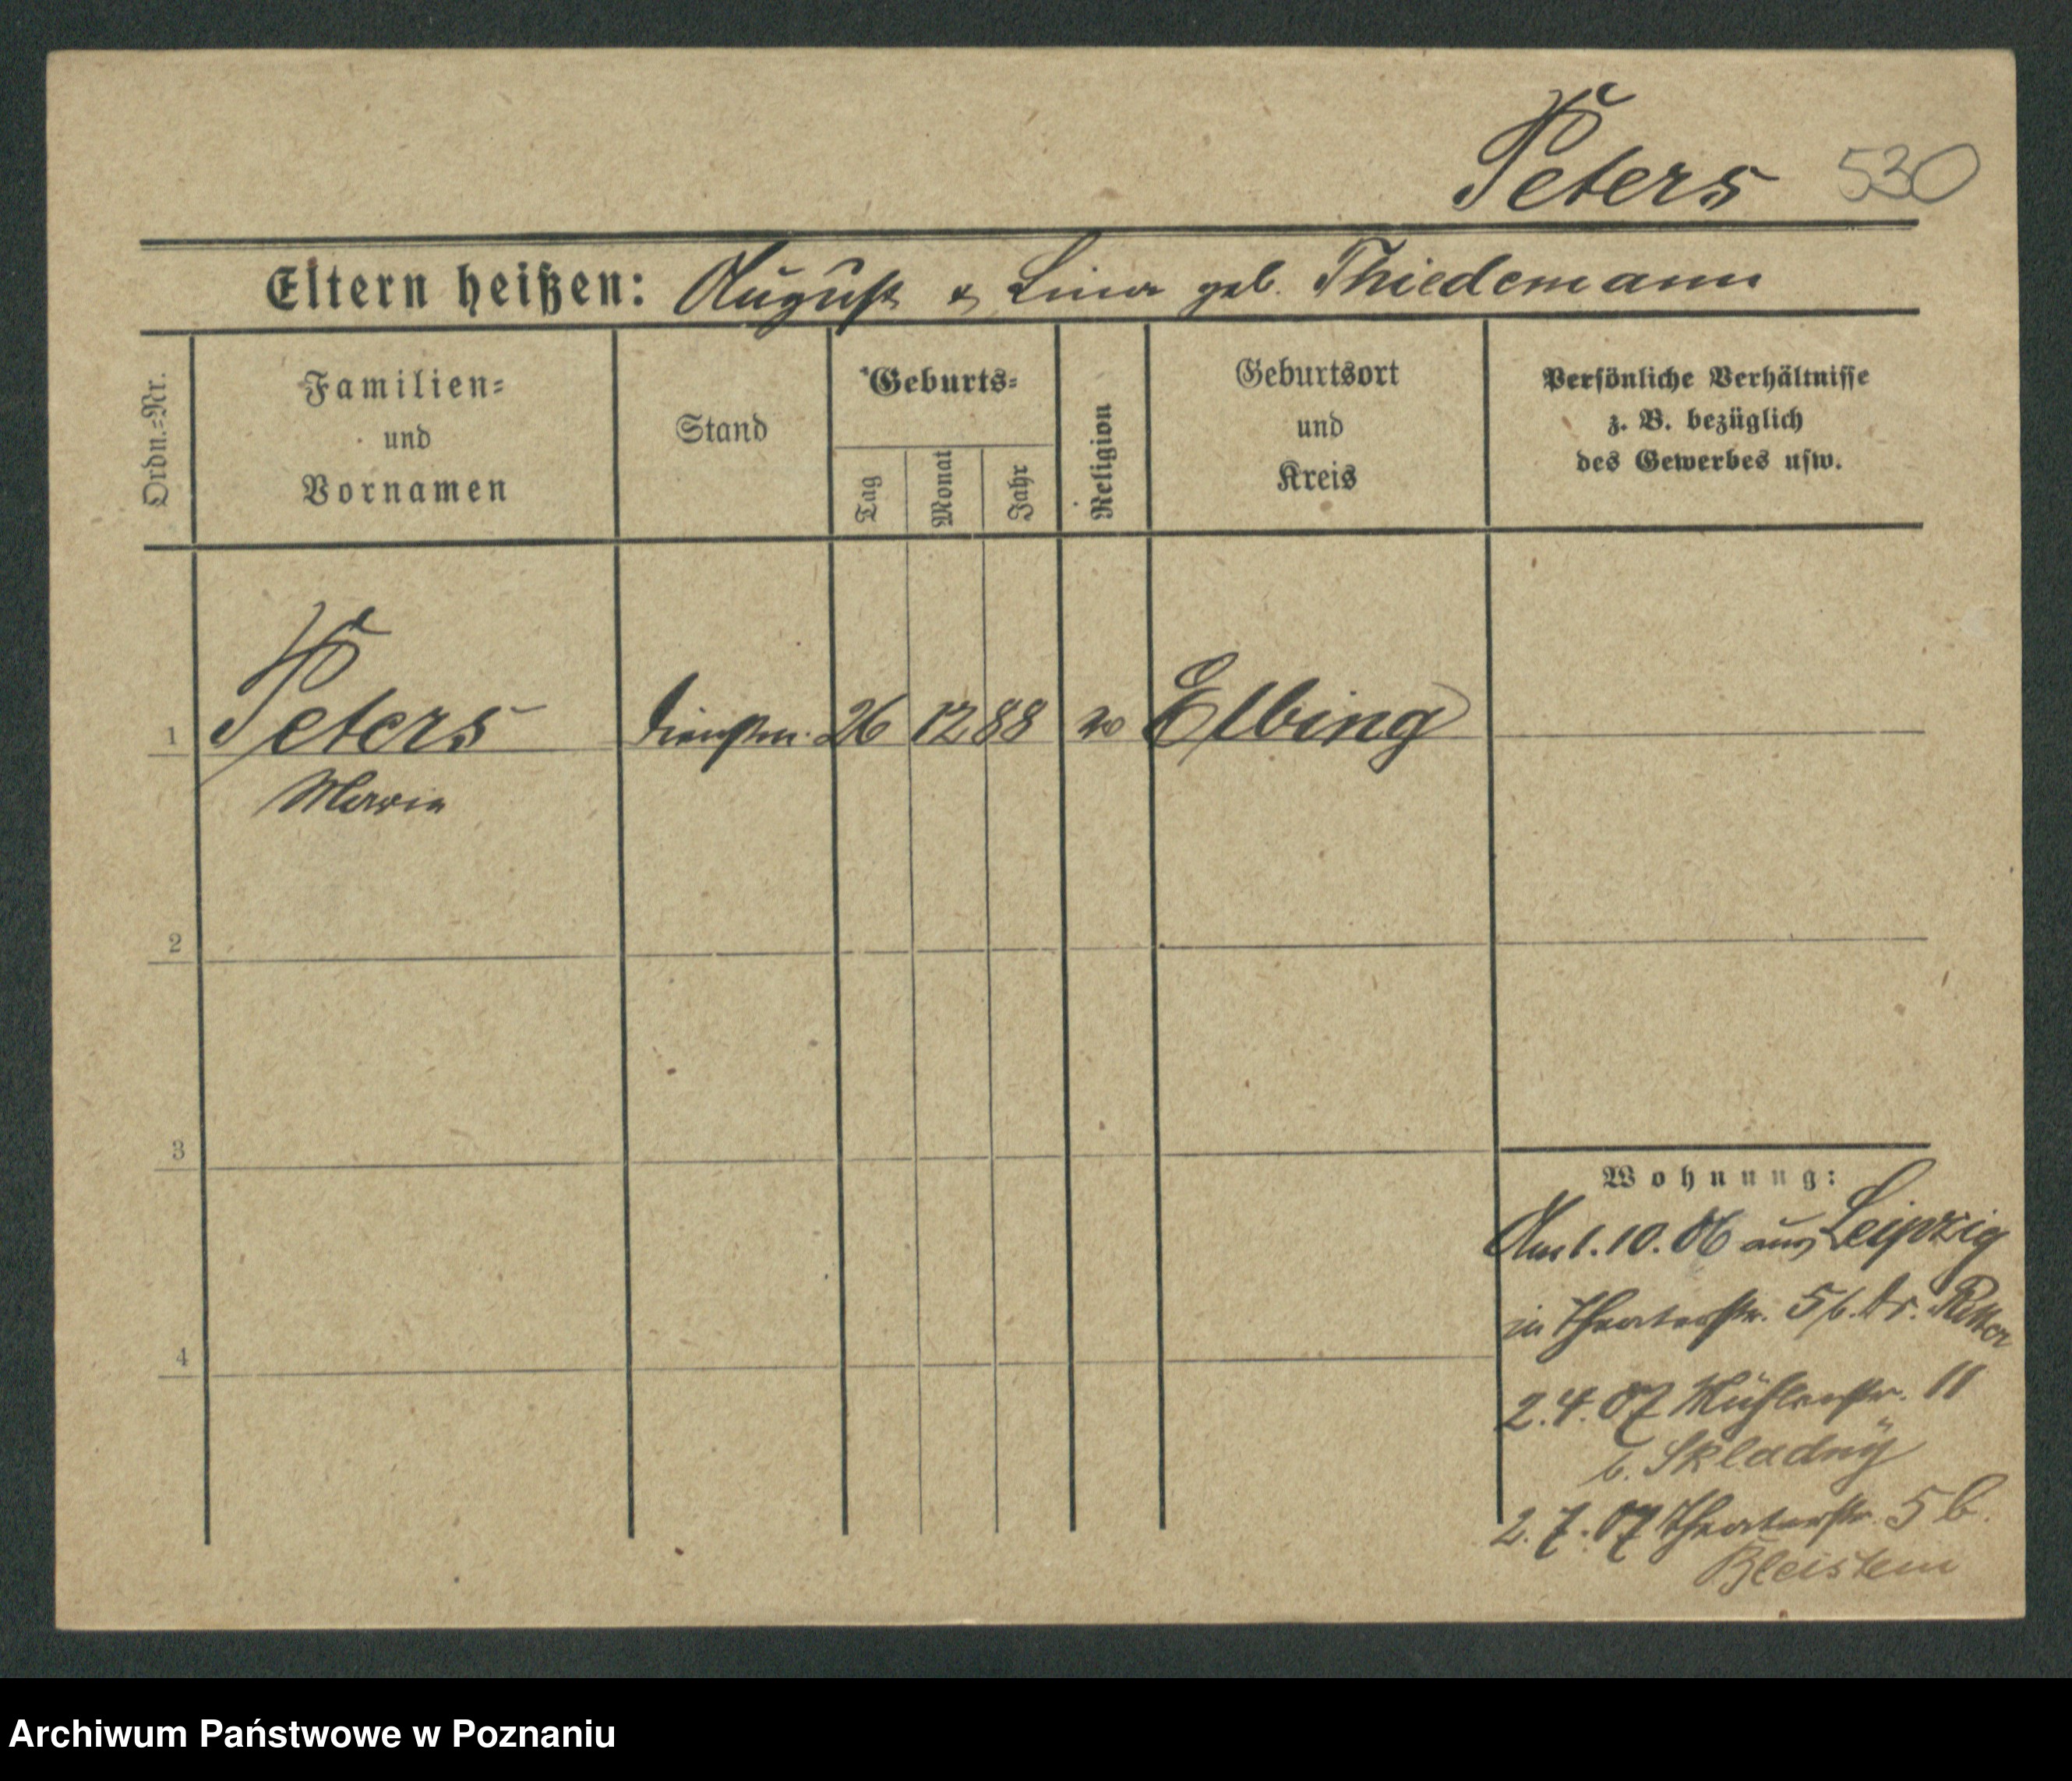 Peters 530
Eltern heißen: August & Lina geb. Thiedemann
Ordn.=Nr.
Familien=
und
Vornamen
Stand
Geburts=
Tag
Monat
Jahr
Religion
Geburtsort
und
Kreis
Persönliche Verhältnisse
z. B. bezüglich
des Gewerbes usw.
1 Peters Dienstm. 26 12 88 Elbing
Maria
2
3
4
Wohnung:
Am 1.10.06 aus Leipzig
in Theaterstr. 5 b. Dr.
2.4.07 Mühlenstr. 11
b. Skladny
2.7.07 Theaterstr. 5 b.
Bleistein
Archiwum Państwowe w Poznaniu